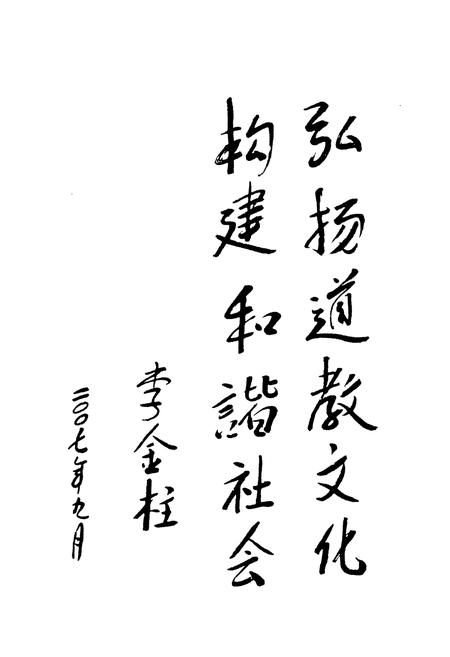 弘扬道教文化
构建和谐社会
李金柱
二〇〇七年九月